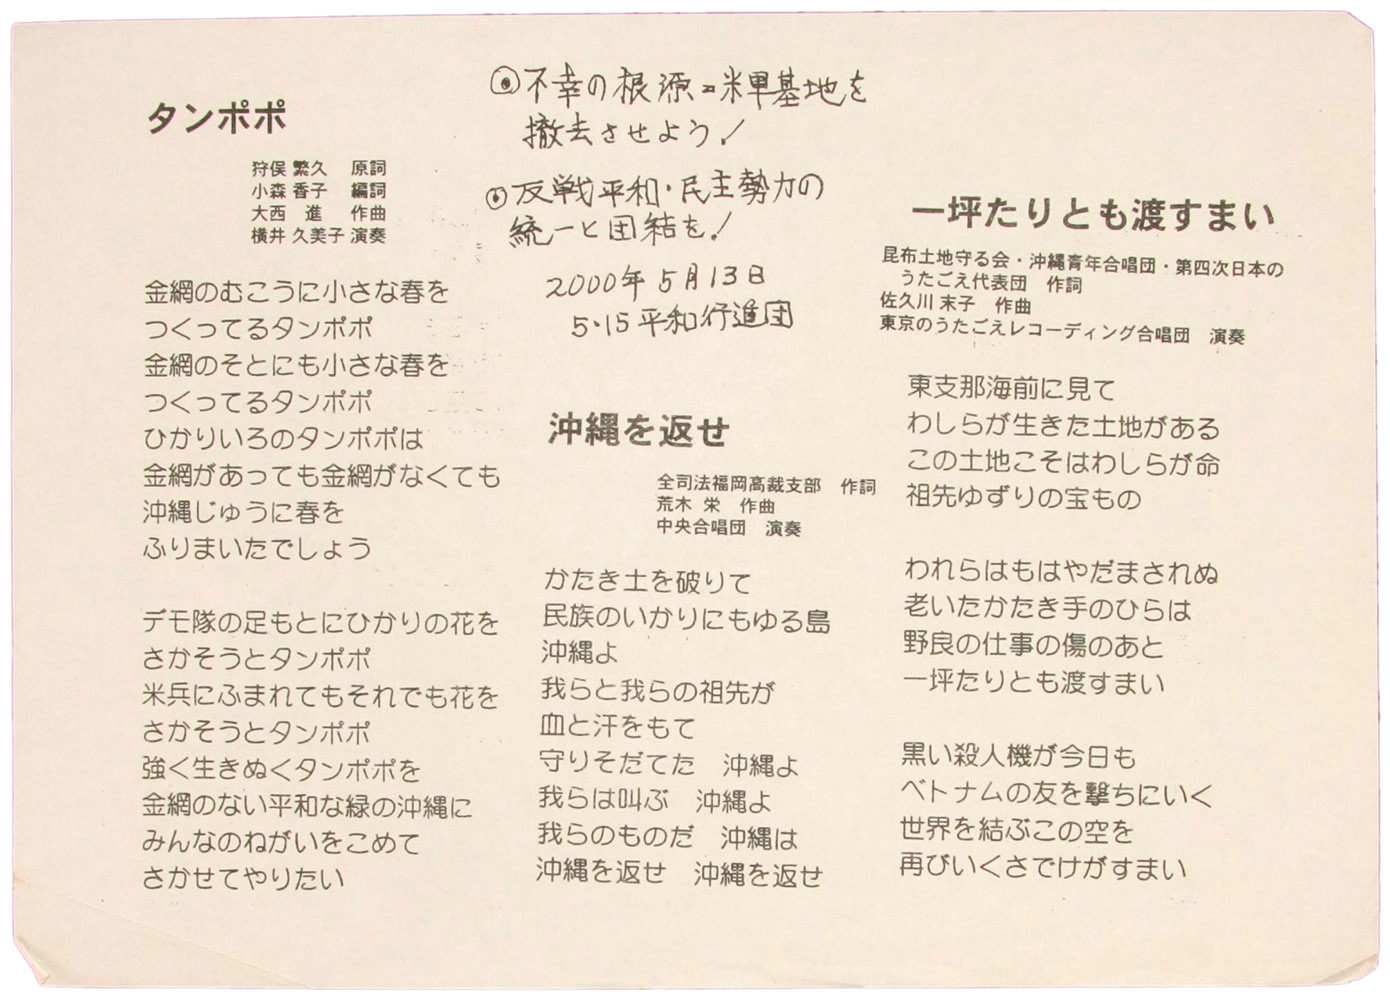 タンポポ
狩俣 繁久　原詞
小森 香子　編詞
大西　進　作曲
横井 久美子 演奏
金網のむこうに小さな春を
つくってるタンポポ
金網のそとにも小さな春を
つくってるタンポポ
ひかりいろのタンポポは
金網があっても金網がなくても
沖縄じゅうに春を
ふりまいたでしょう
デモ隊の足もとにひかりの花を
さかそうとタンポポ
米兵にふまれてもそれでも花を
さかそうとタンポポ
強く生きぬくタンポポを
金網のない平和な緑の沖縄に
みんなのねがいをこめて
さかせてやりたい
◉不幸の根源=米軍基地を
撤去させよう!
◉反戦平和・民主勢力の
統一と団結を!
2000年5月13日
5・15平和行進団
沖縄を返せ
全司法福岡高裁支部　作詞
荒木 栄　作曲
中央合唱団　演奏
かたき土を破りて
民族のいかりにもゆる島
沖縄よ
我らと我らの祖先が
血と汗をもて
守りそだてた　沖縄よ
我らは叫ぶ　沖縄よ
我らのものだ　沖縄は
沖縄を返せ　沖縄を返せ
一坪たりとも渡すまい
昆布土地守る会・沖縄青年合唱団・第四次日本の
うたごえ代表団　作詞
佐久川 末子　作曲
東京のうたごえレコーディング合唱団　演奏
東支那海前に見て
わしらが生きた土地がある
この土地こそはわしらが命
祖先ゆずりの宝もの
われらはもはやだまされぬ
老いたかたき手のひらは
野良の仕事の傷のあと
一坪たりとも渡すまい
黒い殺人機が今日も
ベトナムの友を撃ちにいく
世界を結ぶこの空を
再びいくさでけがすまい